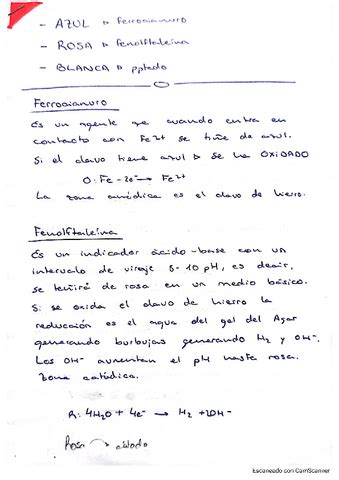 - AZUL ▷ ferrocianuro
- ROSA ▷ fenolftaleína
- BLANCA ▷ pptado
Ferrocianuro
Es un agente que cuando entra en
contacto con Fe²⁺ se tiñe de azul.
Si el clavo tiene azul ▷ se ha OXIDADO
O: Fe - 2e⁻ → Fe²⁺
La zona anódica es el clavo de hierro.
Fenolftaleína
Es un indicador ácido-base con un
intervalo de viraje 8-10 pH, es decir,
se teñirá de rosa en un medio básico.
Si se oxida el clavo de hierro la
reducción es el agua del gel del Agar
generando burbujas generando H₂ y OH⁻.
Los OH⁻ aumentan el pH hasta rosa.
Zona catódica.
R: 4H₂O + 4e⁻ → H₂ + 2OH⁻
Rosa → cátodo
Escaneado con CamScanner